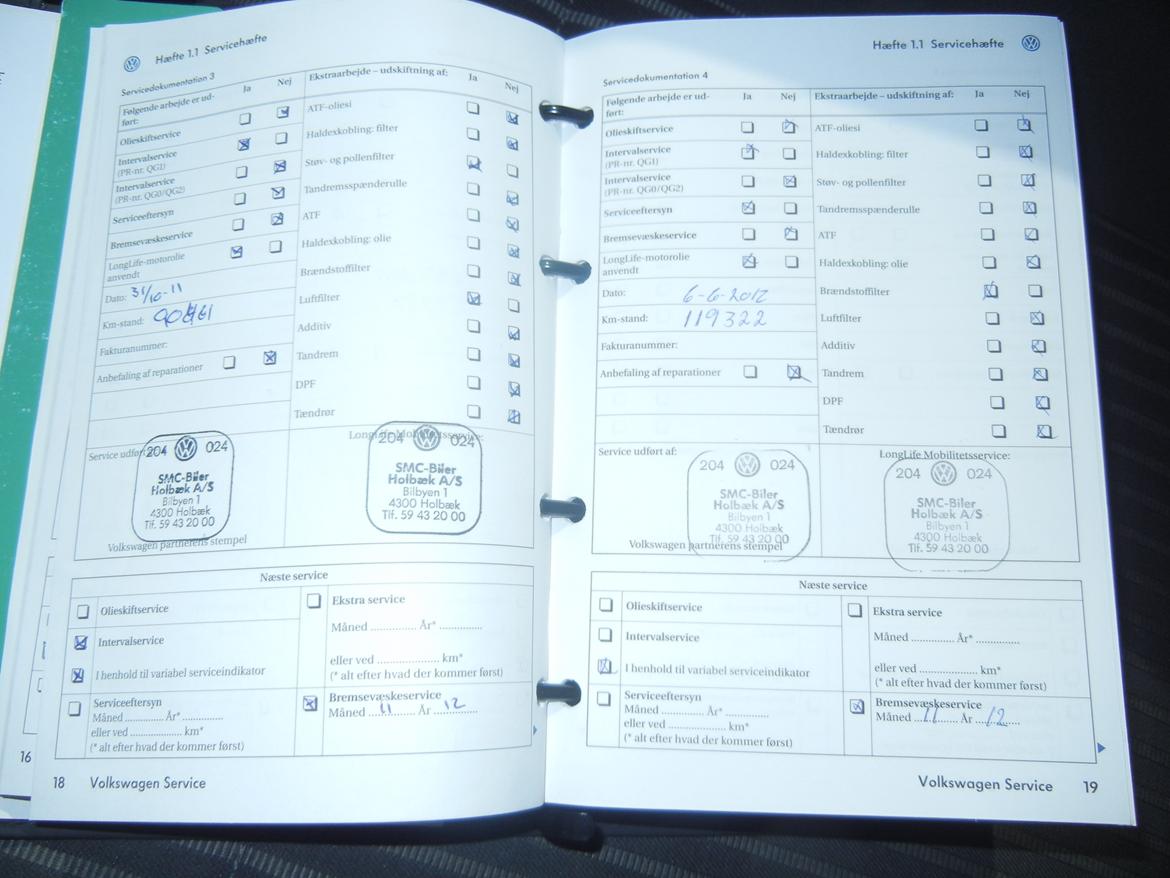 Hæfte 1.1 Servicehæfte
Servicedokumentation 3
Følgende arbejde er ud-
ført:
Ja
Nej
Olieskiftservice
Intervalservice
(PR-nr. QG1)
Intervalservice
(PR-nr. QG0/QG2)
Serviceeftersyn
Bremsevæskeservice
LongLife-motorolie
anvendt
Dato: 31/10-11
Km-stand:
Fakturanummer:
Anbefaling af reparationer
Ekstraarbejde – udskiftning af:
Ja
Nej
ATF-oliesi
Haldexkobling: filter
Støv- og pollenfilter
Tandremsspænderulle
ATF
Haldexkobling: olie
Brændstoffilter
Luftfilter
Additiv
Tandrem
DPF
Tændrør
Service udført
204 024
SMC-Biler
Holbæk A/S
Bilbyen 1
4300 Holbæk
Tlf. 59 43 20 00
Volkswagen partnerens stempel
LongLife Mobilitetsservice:
204 024
SMC-Biler
Holbæk A/S
Bilbyen 1
4300 Holbæk
Tlf. 59 43 20 00
Næste service
Olieskiftservice
Intervalservice
I henhold til variabel serviceindikator
Serviceeftersyn
Måned ............. År* ..............
eller ved ...................... km*
(* alt efter hvad der kommer først)
Ekstra service
Måned .............. År* .............
eller ved .................... km*
(* alt efter hvad der kommer først)
Bremsevæskeservice
Måned 11 År 12
16
18 Volkswagen Service
Hæfte 1.1 Servicehæfte
Servicedokumentation 4
Følgende arbejde er ud-
ført:
Ja
Nej
Olieskiftservice
Intervalservice
(PR-nr. QG1)
Intervalservice
(PR-nr. QG0/QG2)
Serviceeftersyn
Bremsevæskeservice
LongLife-motorolie
anvendt
Dato: 6-6-2012
Km-stand: 119322
Fakturanummer:
Anbefaling af reparationer
Ekstraarbejde – udskiftning af:
Ja
Nej
ATF-oliesi
Haldexkobling: filter
Støv- og pollenfilter
Tandremsspænderulle
ATF
Haldexkobling: olie
Brændstoffilter
Luftfilter
Additiv
Tandrem
DPF
Tændrør
Service udført af:
204 024
SMC-Biler
Holbæk A/S
Bilbyen 1
4300 Holbæk
Tlf. 59 43 20 00
Volkswagen partnerens stempel
LongLife Mobilitetsservice:
204 024
SMC-Biler
Holbæk A/S
Bilbyen 1
4300 Holbæk
Tlf. 59 43 20 00
Næste service
Olieskiftservice
Intervalservice
I henhold til variabel serviceindikator
Serviceeftersyn
Måned ............. År* ..............
eller ved ...................... km*
(* alt efter hvad der kommer først)
Ekstra service
Måned .............. År* .............
eller ved .................... km*
(* alt efter hvad der kommer først)
Bremsevæskeservice
Måned 11 År 12
Volkswagen Service 19